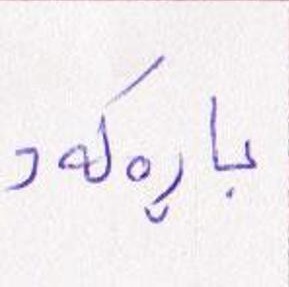 باڕەکەد